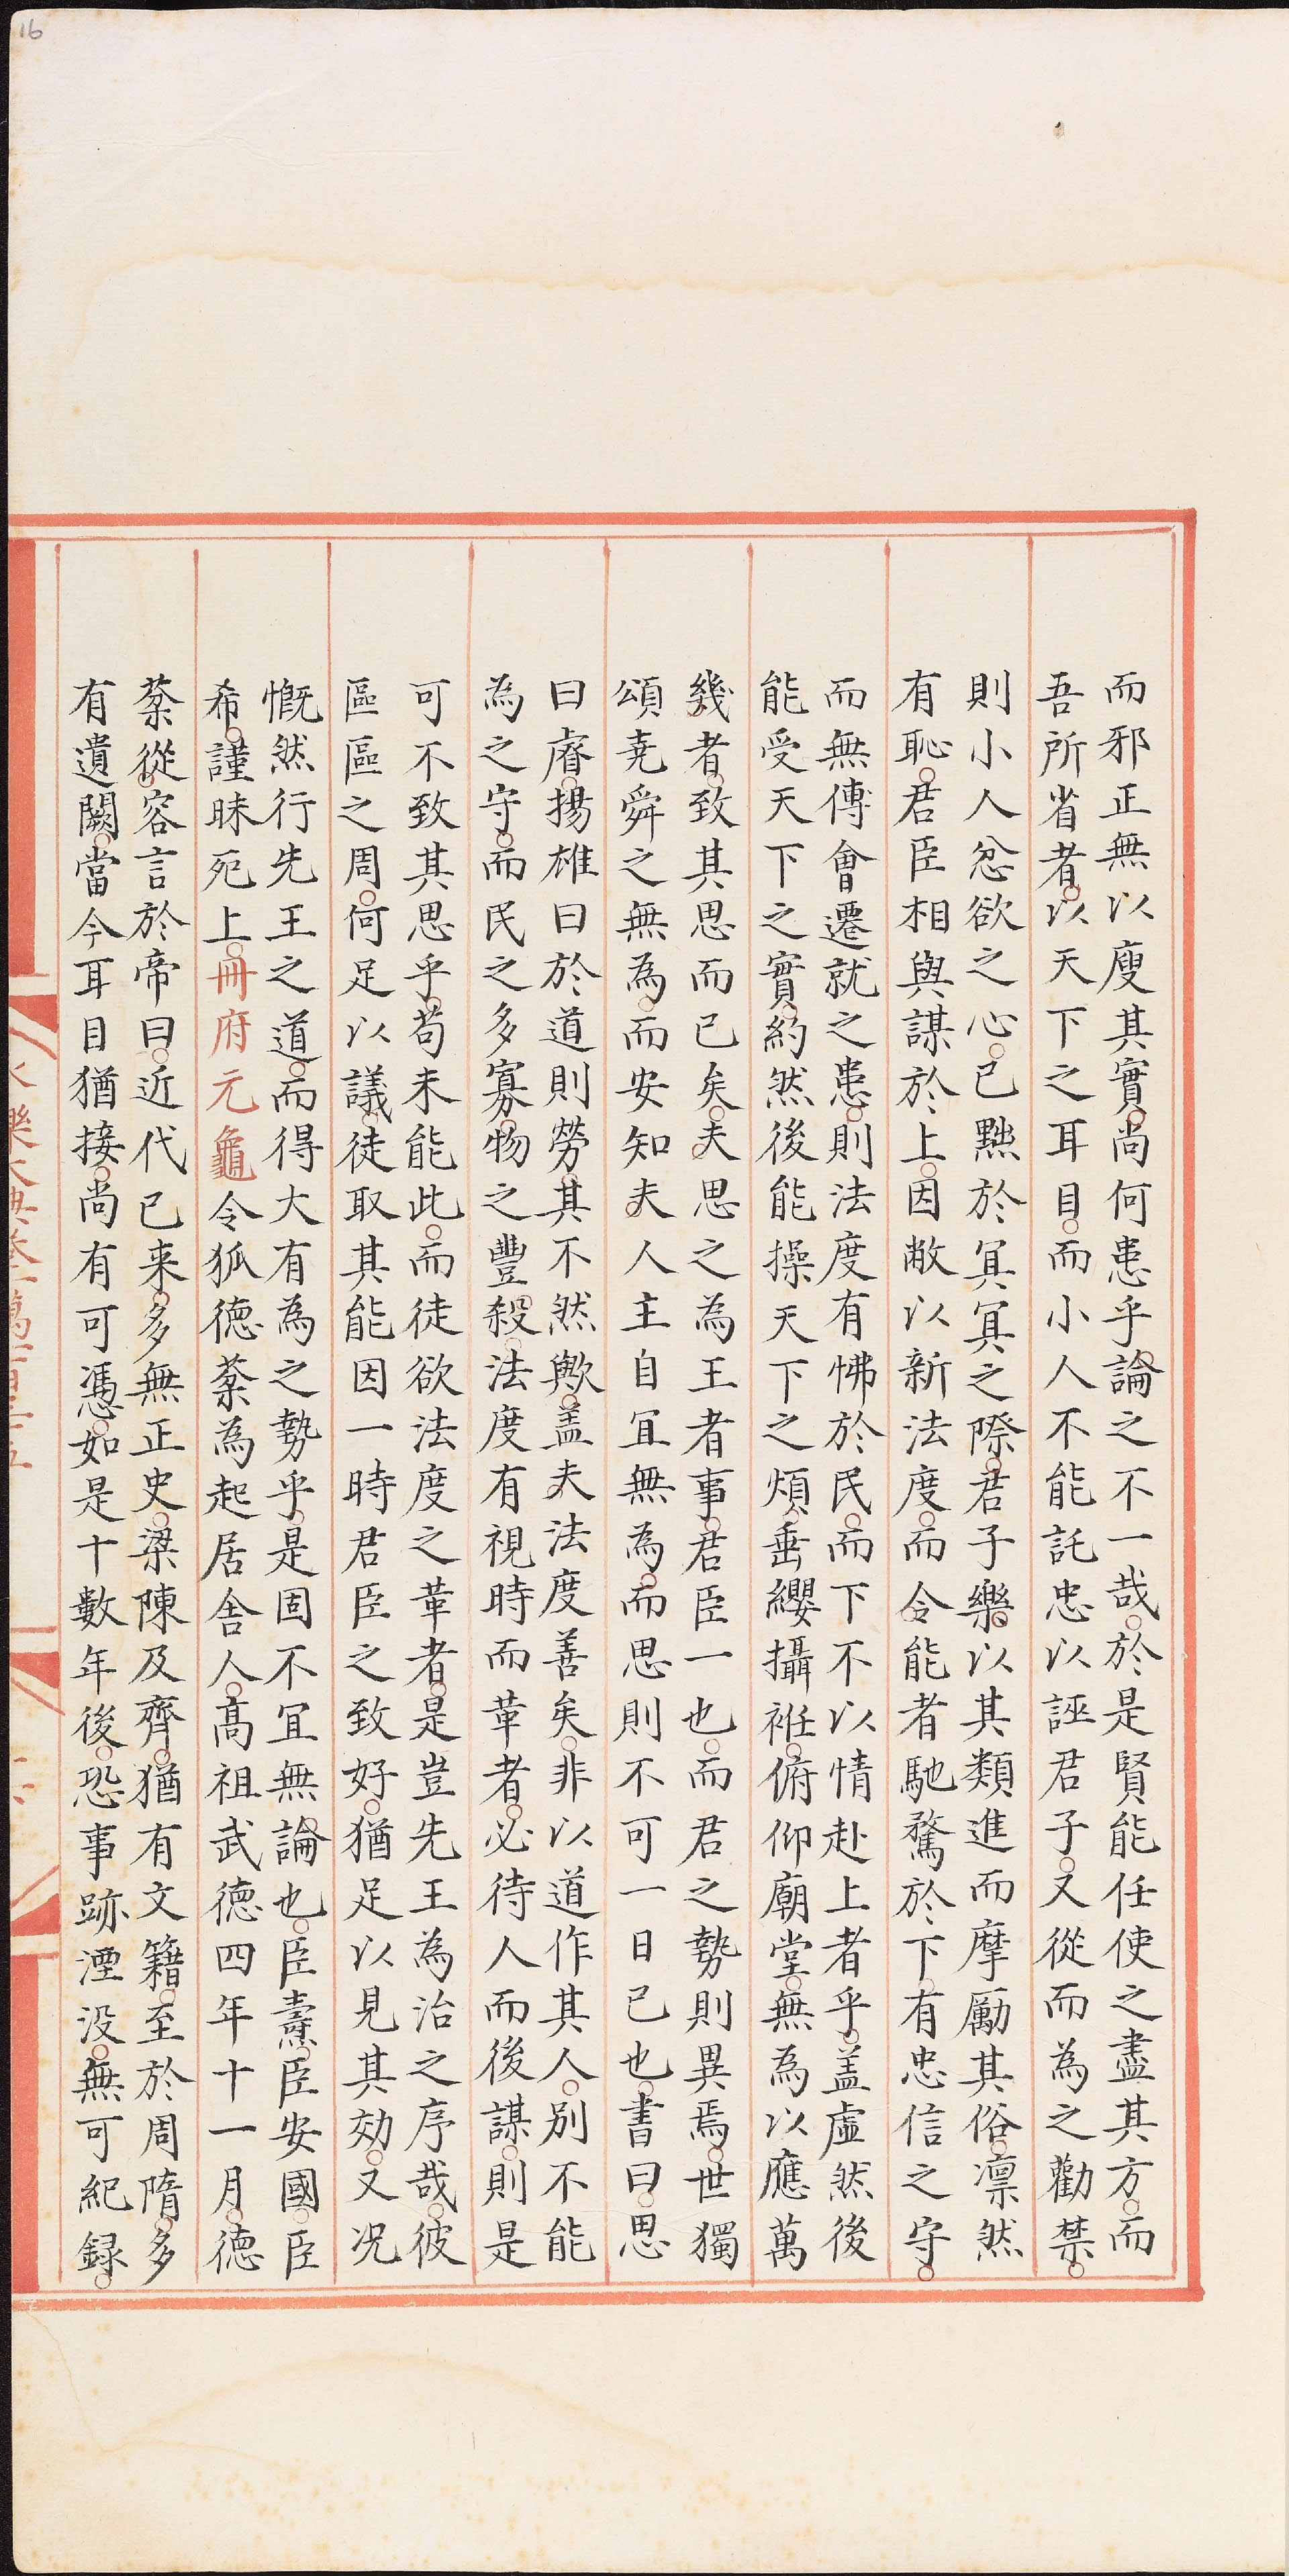 16
而邪正無以廋其實尚何患乎論之不一哉於是賢能任使之盡其方而
吾所省者以天下之耳目而小人不能託忠以誣君子又從而為之勸禁
則小人忿欲之心已黙於冥冥之際君子樂以其類進而摩厲其俗凛然
有恥君臣相與謀於上因敝以新法度而令能者馳騖於下有忠信之守
而無傅會遷就之患則法度有怫於民而下不以情赴上者乎盖虛然後
能受天下之實約然後能操天下之煩垂纓攝袵俯仰廟堂無為以應萬
幾者致其思而已矣夫思之為王者事君臣一也而君之勢則異焉世獨
頌堯舜之無為而安知夫人主自宜無為而思則不可一日已也書曰思
曰睿揚雄曰於道則勞其不然歟盖夫法度善矣非以道作其人別不能
為之守而民之多寡物之豐殺法度有視時而革者必待人而後謀則是
可不致其思乎苟未能此而徒欲法度之革者是豈先王為治之序哉彼
區區之周何足以議徒取其能因一時君臣之致好猶足以見其効又况
慨然行先王之道而得大有為之勢乎是固不宜無論也臣燾臣安國臣
希謹昧死上冊府元龜令狐德棻為起居舍人髙祖武德四年十一月德
棻從容言於帝曰近代已来多無正史梁陳及齊猶有文籍至於周隋多
有遺闕當今耳目猶接尚有可憑如是十數年後恐事跡湮没無可紀録